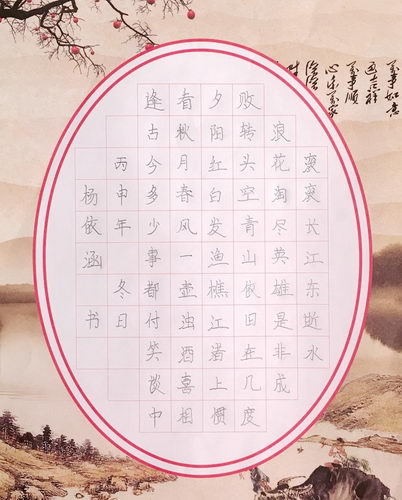 万事如意
万事顺
衮衮长江东逝水
浪花淘尽英雄是非成
败转头空青山依旧在几度
夕阳红白发渔樵江渚上惯
看秋月春风一壶浊酒喜相
逢古今多少事都付笑谈中
丙申年 冬日
杨依涵 书